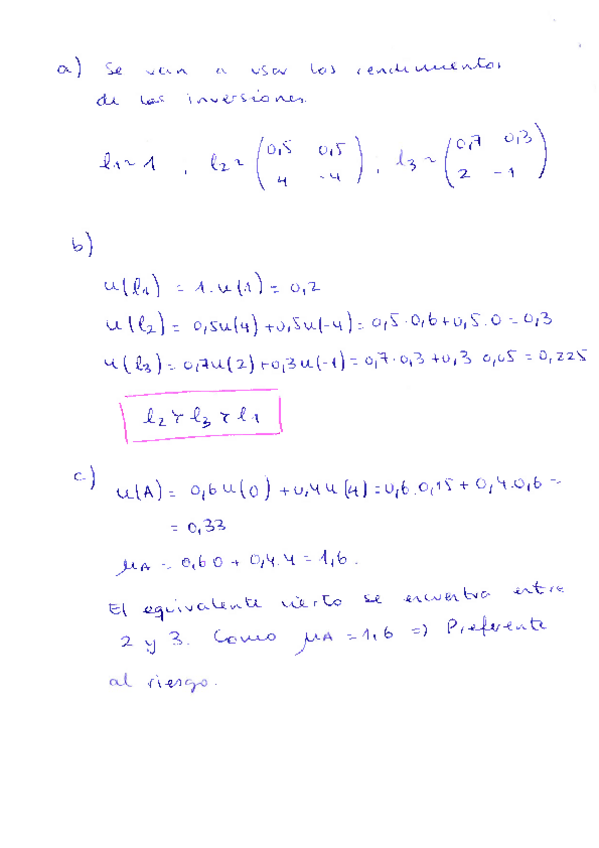 a) Se van a usar los rendimientos
de las inversiones.
l₁ ~ 1 , l₂ ~ (0,5 0,5 ; l₃ ~ (0,7 0,3
4 -4) 2 -1)
b)
u(l₁) = 1·u(1) = 0,2
u(l₂) = 0,5u(4)+0,5u(-4) = 0,5·0,6+0,5·0 = 0,3
u(l₃) = 0,7u(2)+0,3u(-1) = 0,7·0,3+0,3 0,05 = 0,225
l₂ ≻ l₃ ≻ l₁
c)
u(A) = 0,6u(0) + 0,4u(4) = 0,6·0,15 + 0,4·0,6 =
= 0,33
μA = 0,6 0 + 0,4·4 = 1,6.
El equivalente cierto se encuentra entre
2 y 3. Como μA = 1,6 => Preferente
al riesgo.